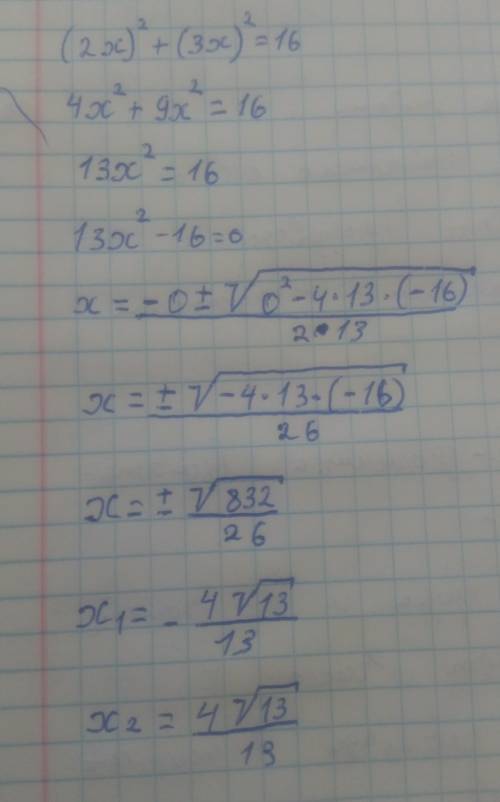 (2x)² + (3x)² = 16
4x² + 9x² = 16
13x² = 16
13x² - 16 = 0
x = (-0 ± √(0² - 4·13·(-16))) / (2·13)
x = ± √(-4·13·(-16)) / 26
x = ± √832 / 26
x₁ = - 4√13 / 13
x₂ = 4√13 / 13